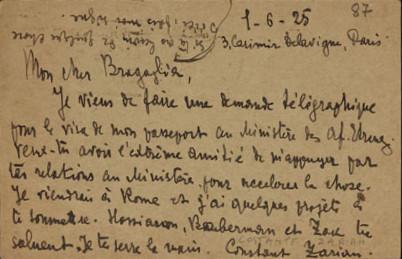 1-6-25
87
3, Casimir Delavigne, Paris
Mon cher Bragaglia,
Je viens de faire une demande télégraphique
pour le visa de mon passeport au Ministère des Af. Etrang.
Veux-tu avoir l'extrême amitié de m'appuyer par
tes relations au Ministère pour accélérer la chose.
Je viendrai à Rome et j'ai quelques projets à
te soumettre. Hossiasson, et Zack te
saluent. Je te serre la main. Constant Zarian.
COSTANTE ZARIAN